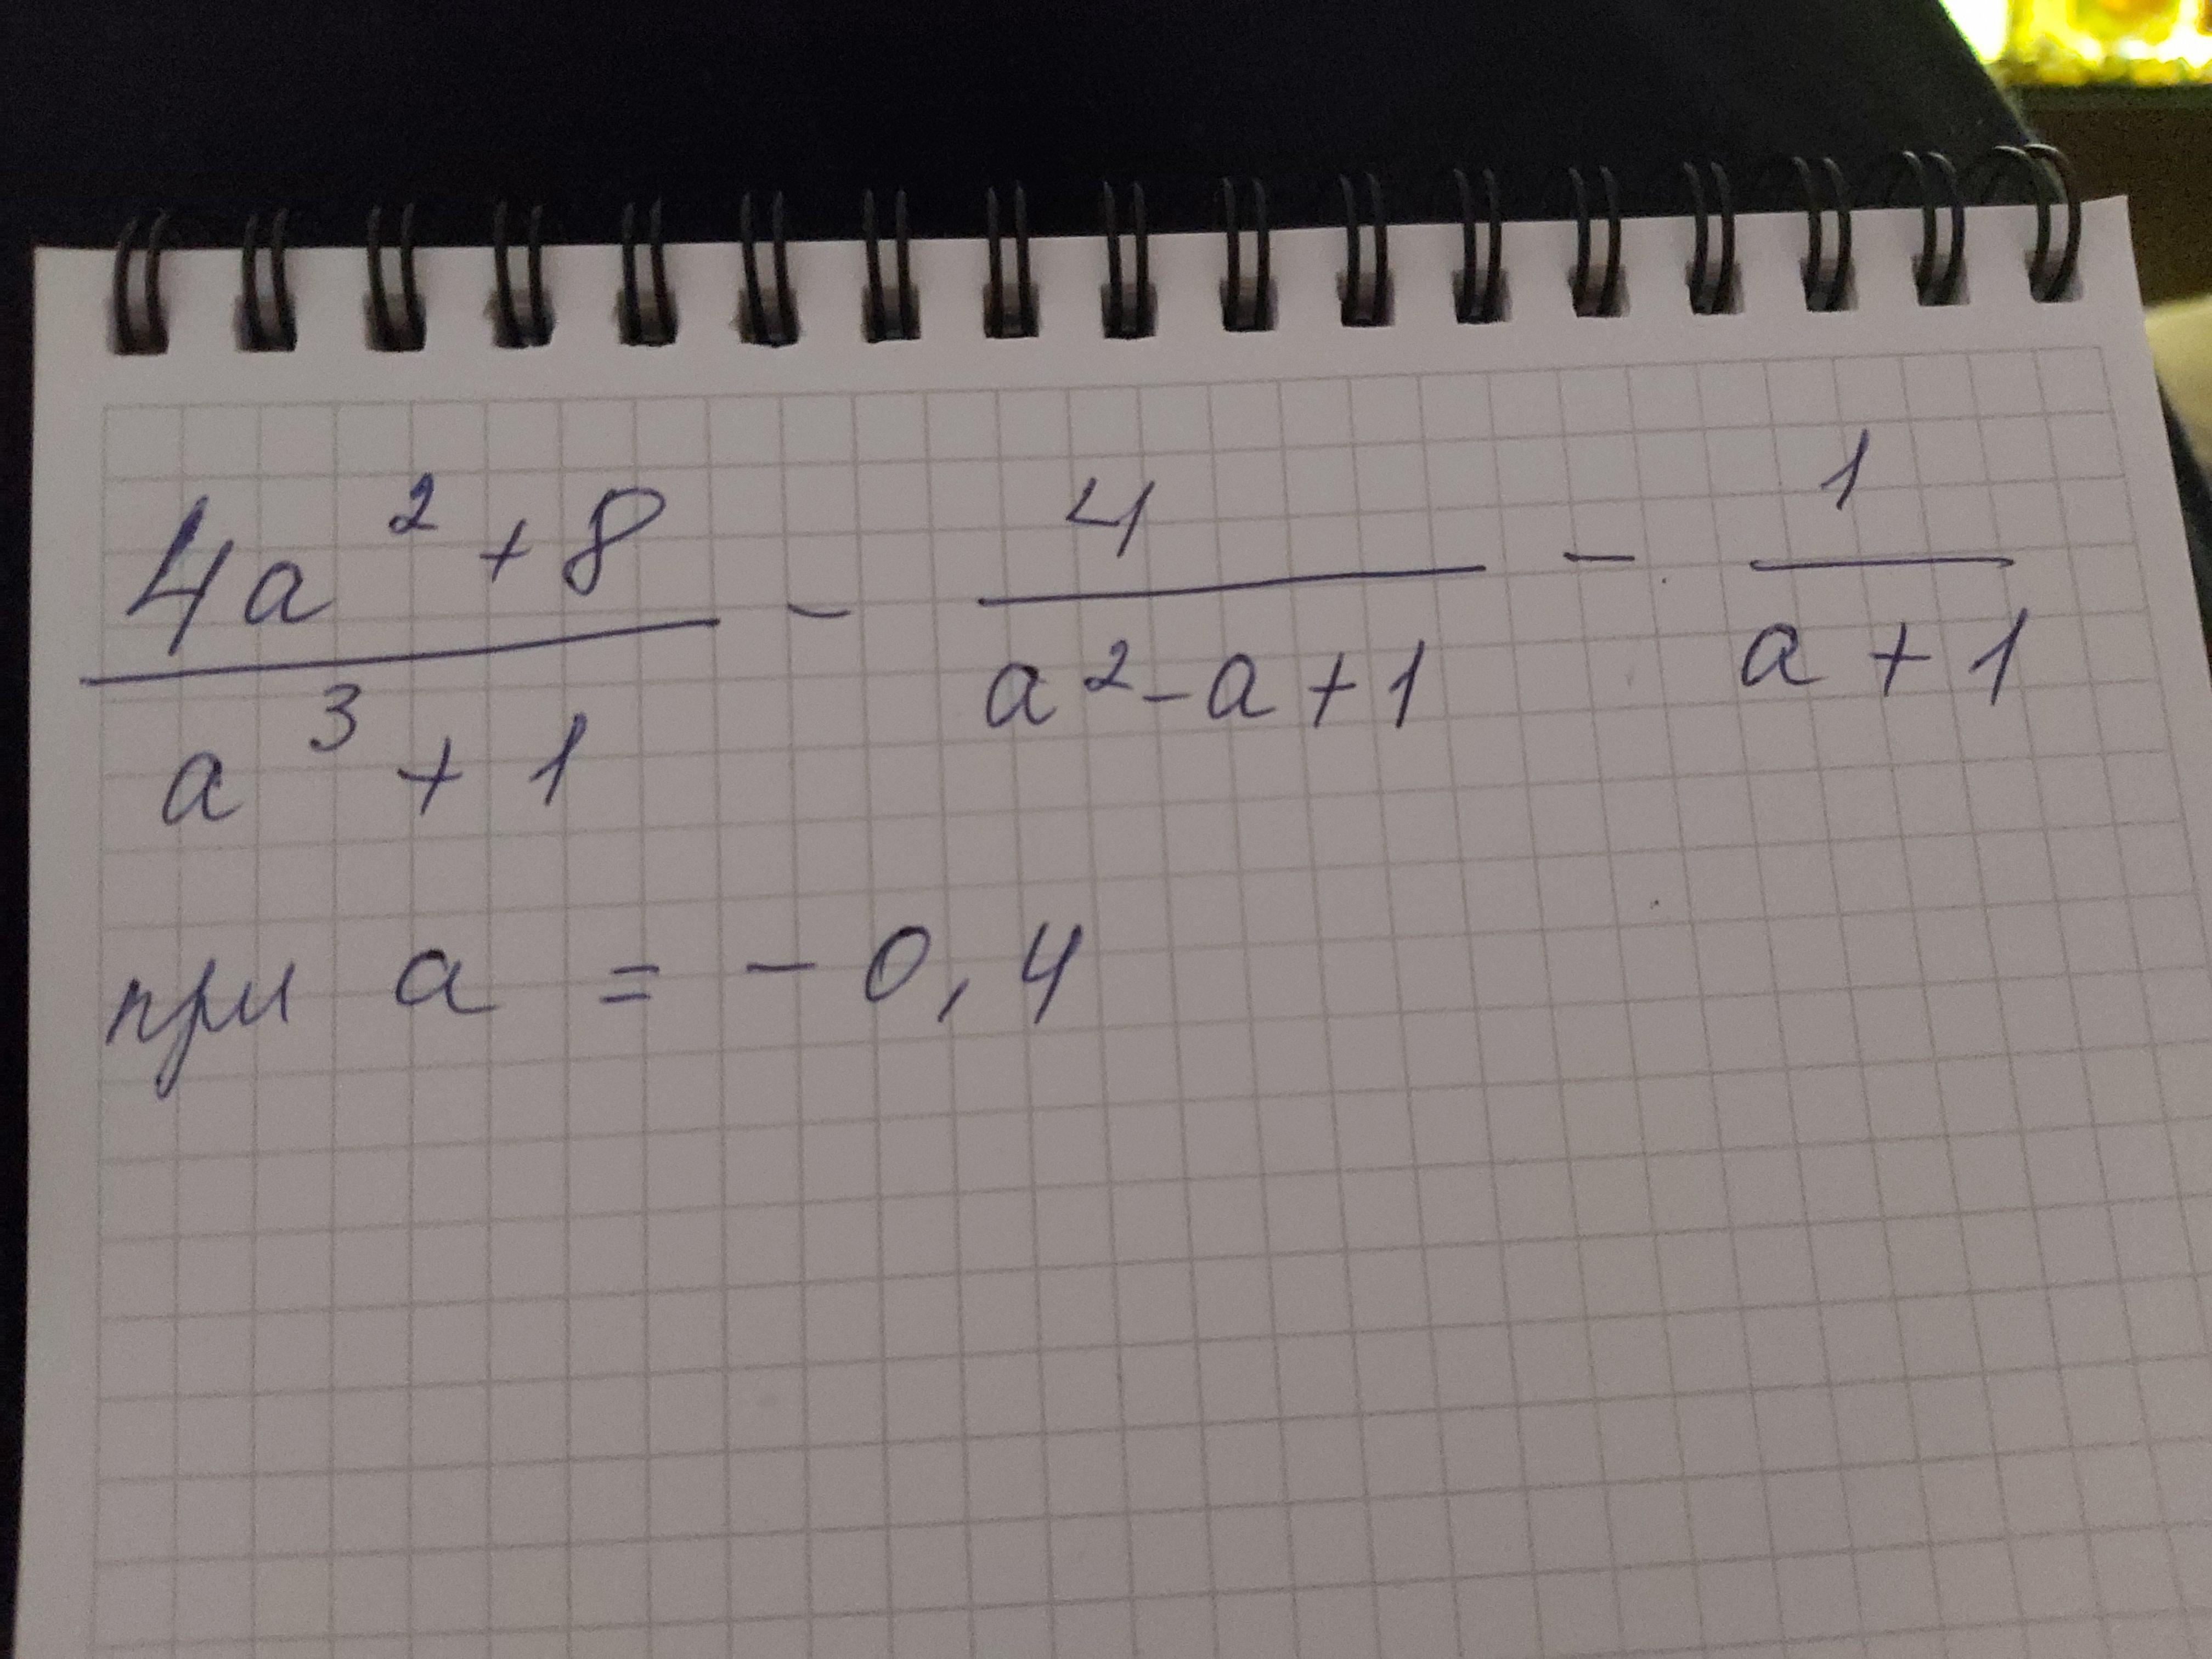 4a² + 8 / a³ + 1 - 4 / a² - a + 1 - 1 / a + 1
при a = - 0,4